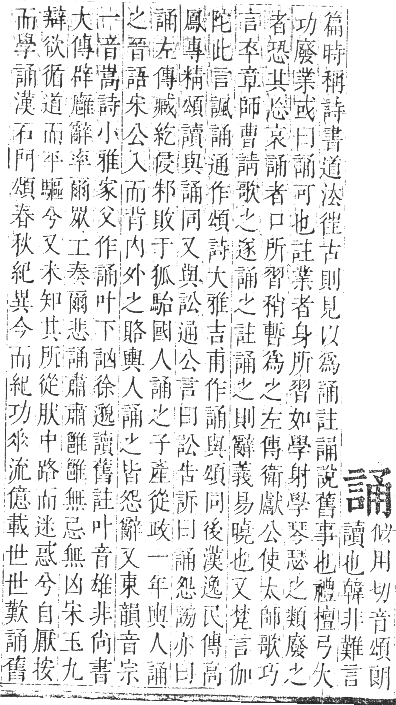 誦
似用切音頌朗
讀也韓非難言
篇時稱詩書道法徃古則見以爲誦註誦說舊事也禮檀弓大
功廢業或曰誦可也註業者身所習如學射學琴瑟之類廢之
者恐其忘哀誦者口所習稍暫爲之左傳衛獻公使太師歌巧
言卒章師曹請歌之遂誦之註誦之則辭義易曉也又梵言伽
陀此言諷誦通作頌詩大雅吉甫作誦與頌同後漢逸民傳高
鳳專精頌讀與誦同又與訟通公言曰訟告訴曰誦怨謗亦曰
誦左傳臧紇侵邾敗于狐駘國人誦之子產從政一年輿人誦
之晉語宋公入而背內外之賂輿人誦之皆怨辭又東韻音宗
一音嵩詩小雅家父作誦叶下訩徐邈讀舊註叶音雄非尚書
大傳辟廱辭率爾眾工奏爾悲誦肅肅雝雝無忌無凶宋玉九
辯欲循道而平驅兮又未知其所從肰中路而迷惑兮自厭按
而學誦漢石門頌春秋紀異今而紀功垂流億載世世歎誦舊